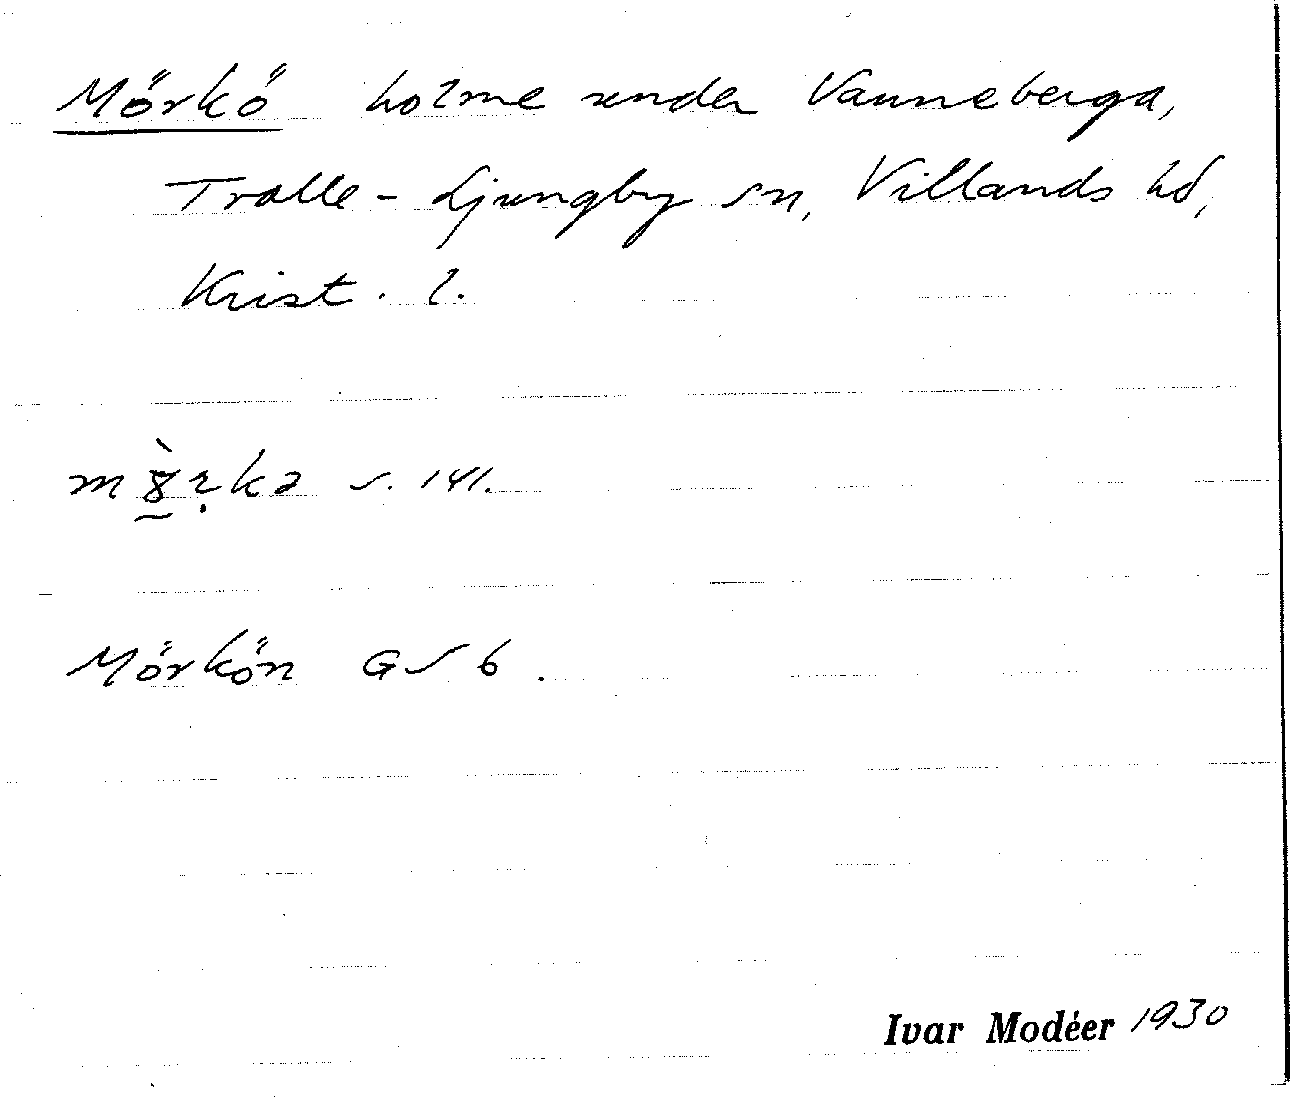 Mörkö holme under Vanneberga,
Tralle-Ljungby sn, Villands hd,
Krist. l.
s. 141.
Mörkön GS 6.
Ivar Modéer 1930